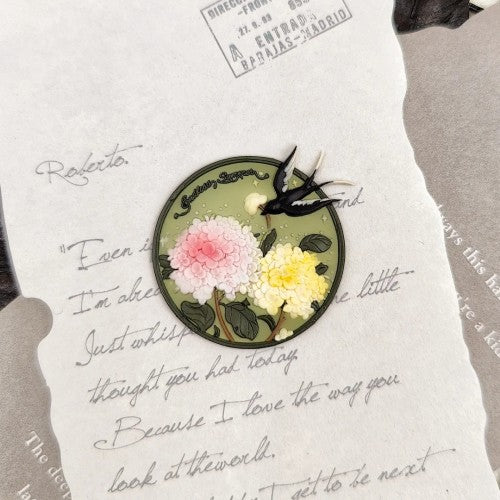 DIRECC
-FRONT
27.9.89
A ENTRADA
BARAJAS-MADRID
Roberto.
Endless Summer
"Even i and
I'm alrea e little
Just whisp
thought you had today.
Because I love the way you
look at theworld.
I get to be next
always this ha
're a kin
The deep